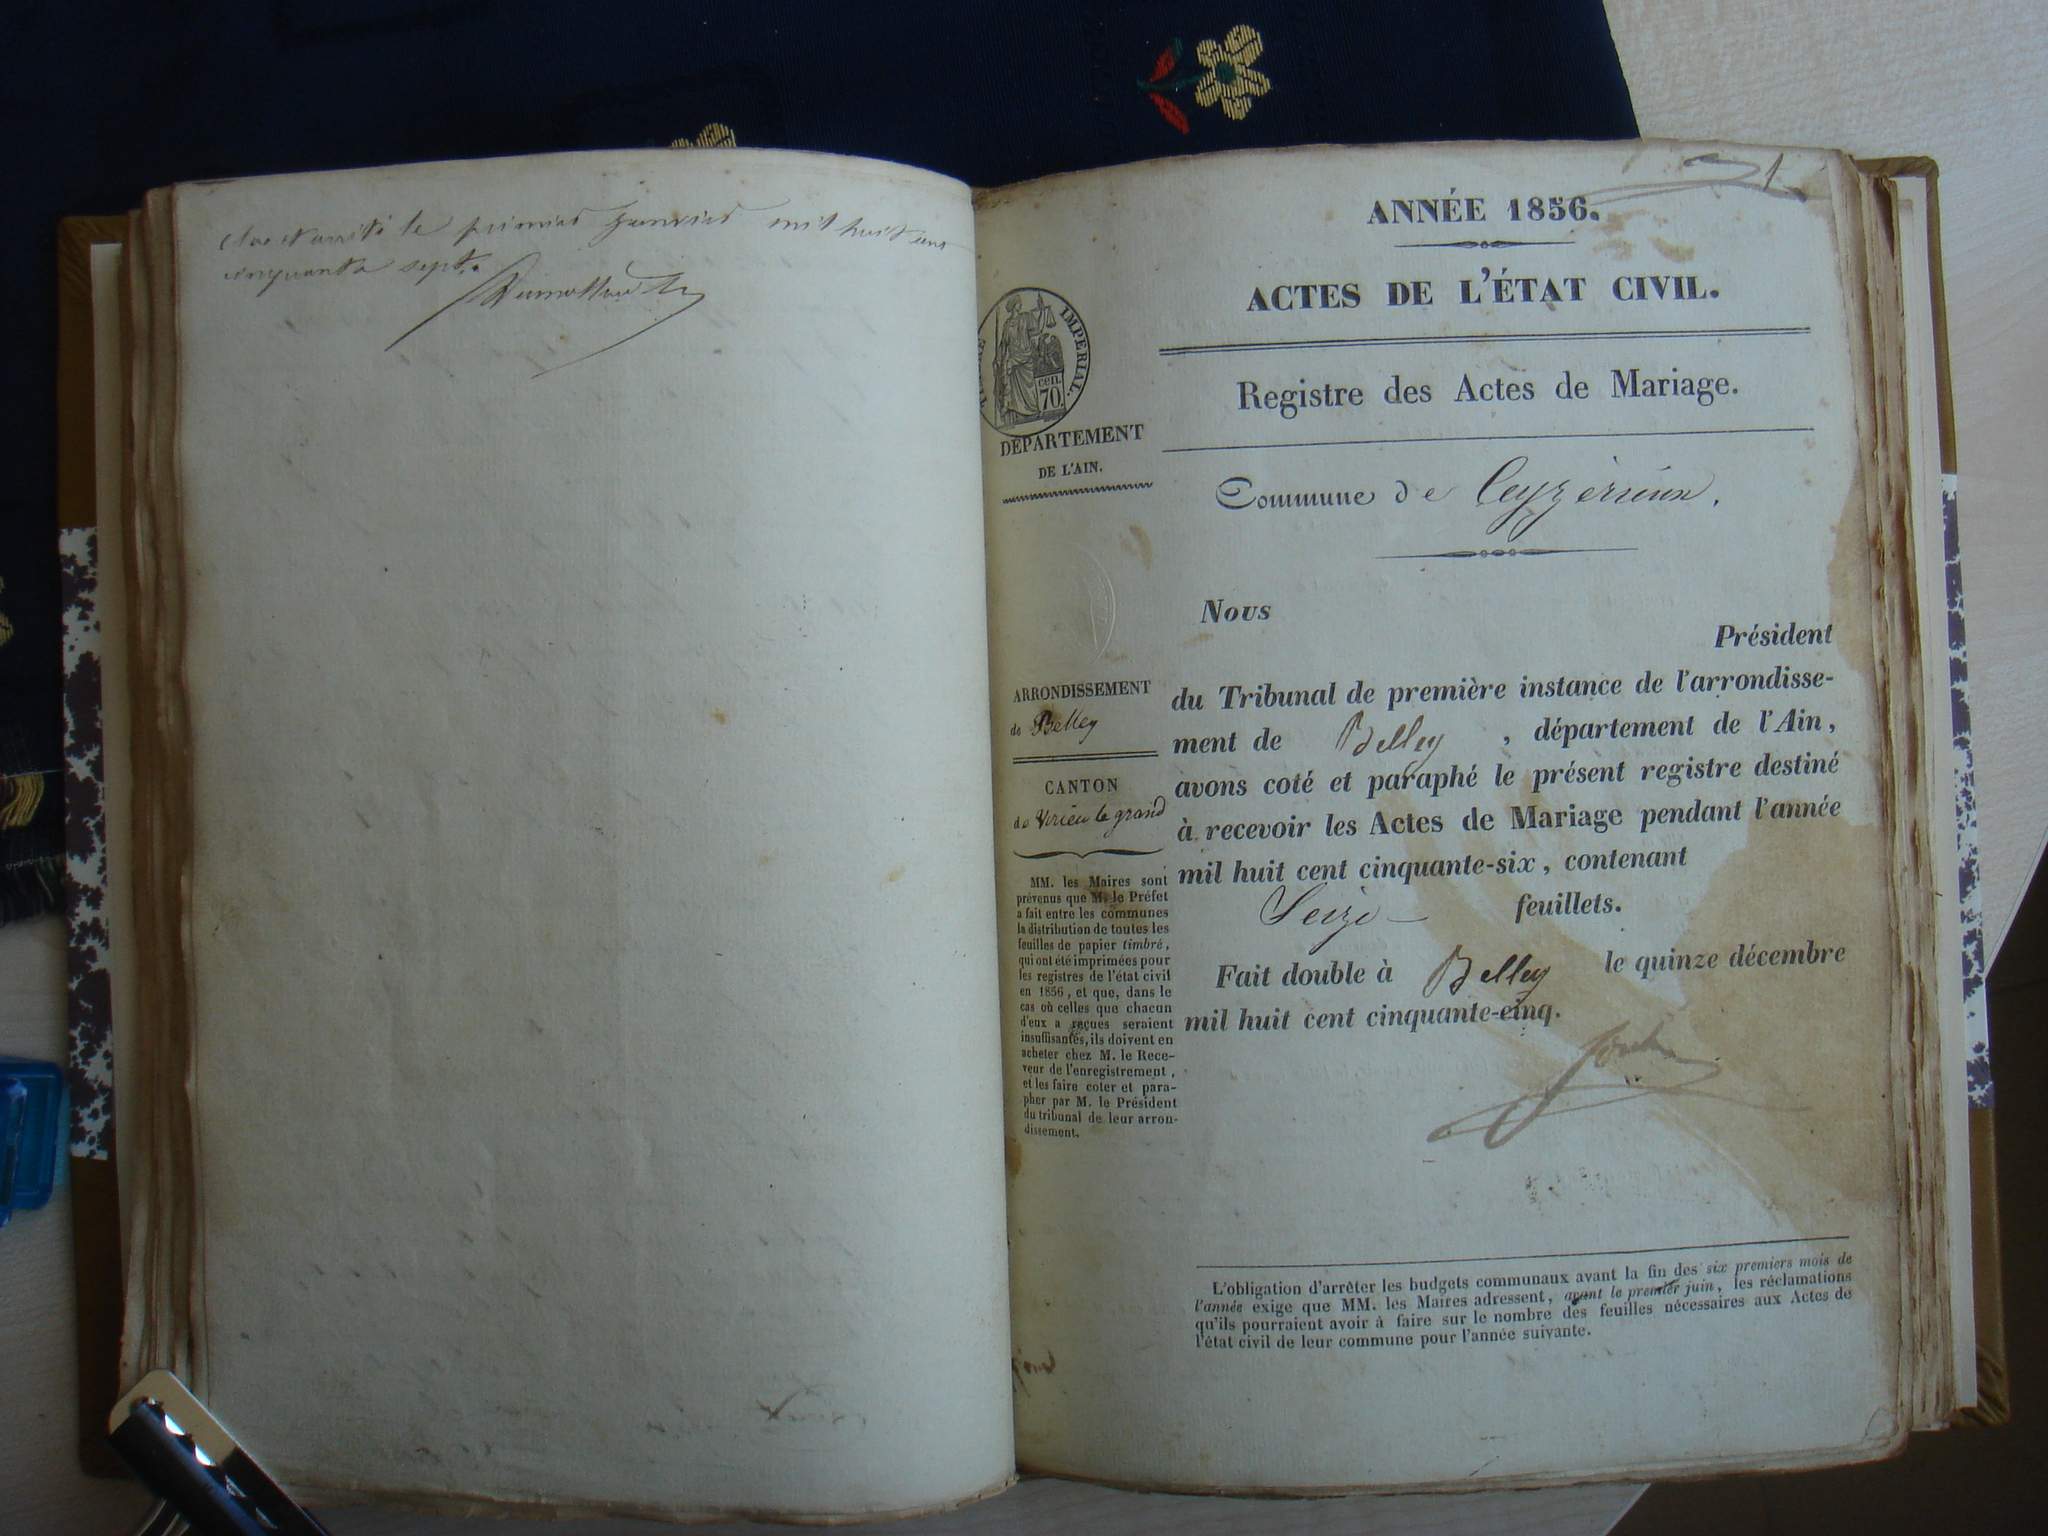 Clos et arrêté le premier janvier mil huit cent
cinquante sept.
1.
ANNÉE 1856.
ACTES DE L'ÉTAT CIVIL.
Registre des Actes de Mariage.
Commune de Ceyzérieux.
IMPERIAL.
70.
cen.
DÉPARTEMENT
DE L'AIN.
ARRONDISSEMENT
de Belley
CANTON
de Virieu le grand
MM. les Maires sont
prévenus que M. le Préfet
a fait entre les communes
la distribution de toutes les
feuilles de papier timbré,
qui ont été imprimées pour
les registres de l'état civil
en 1856, et que, dans le
cas où celles que chacun
d'eux a reçues seraient
insuffisantes, ils doivent en
acheter chez M. le Rece-
veur de l'enregistrement,
et les faire coter et para-
pher par M. le Président
du tribunal de leur arron-
dissement.
Nous
Président
du Tribunal de première instance de l'arrondisse-
ment de Belley, département de l'Ain,
avons coté et paraphé le présent registre destiné
à recevoir les Actes de Mariage pendant l'année
mil huit cent cinquante-six, contenant
Seize feuillets.
Fait double à Belley le quinze décembre
mil huit cent cinquante-cinq.
L'obligation d'arrêter les budgets communaux avant la fin des six premiers mois de
l'année exige que MM. les Maires adressent, avant le premier juin, les réclamations
qu'ils pourraient avoir à faire sur le nombre des feuilles nécessaires aux Actes de
l'état civil de leur commune pour l'année suivante.